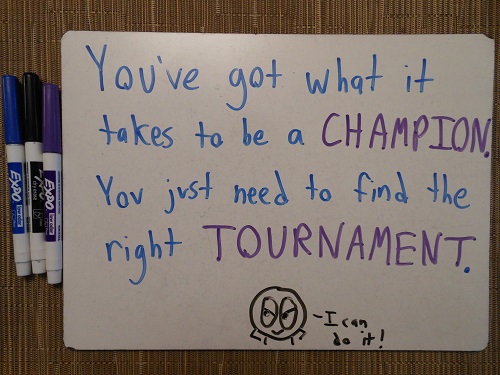 You've got what it
takes to be a CHAMPION.
You just need to find the
right TOURNAMENT.
-I can
do it!
EXPO
EXPO